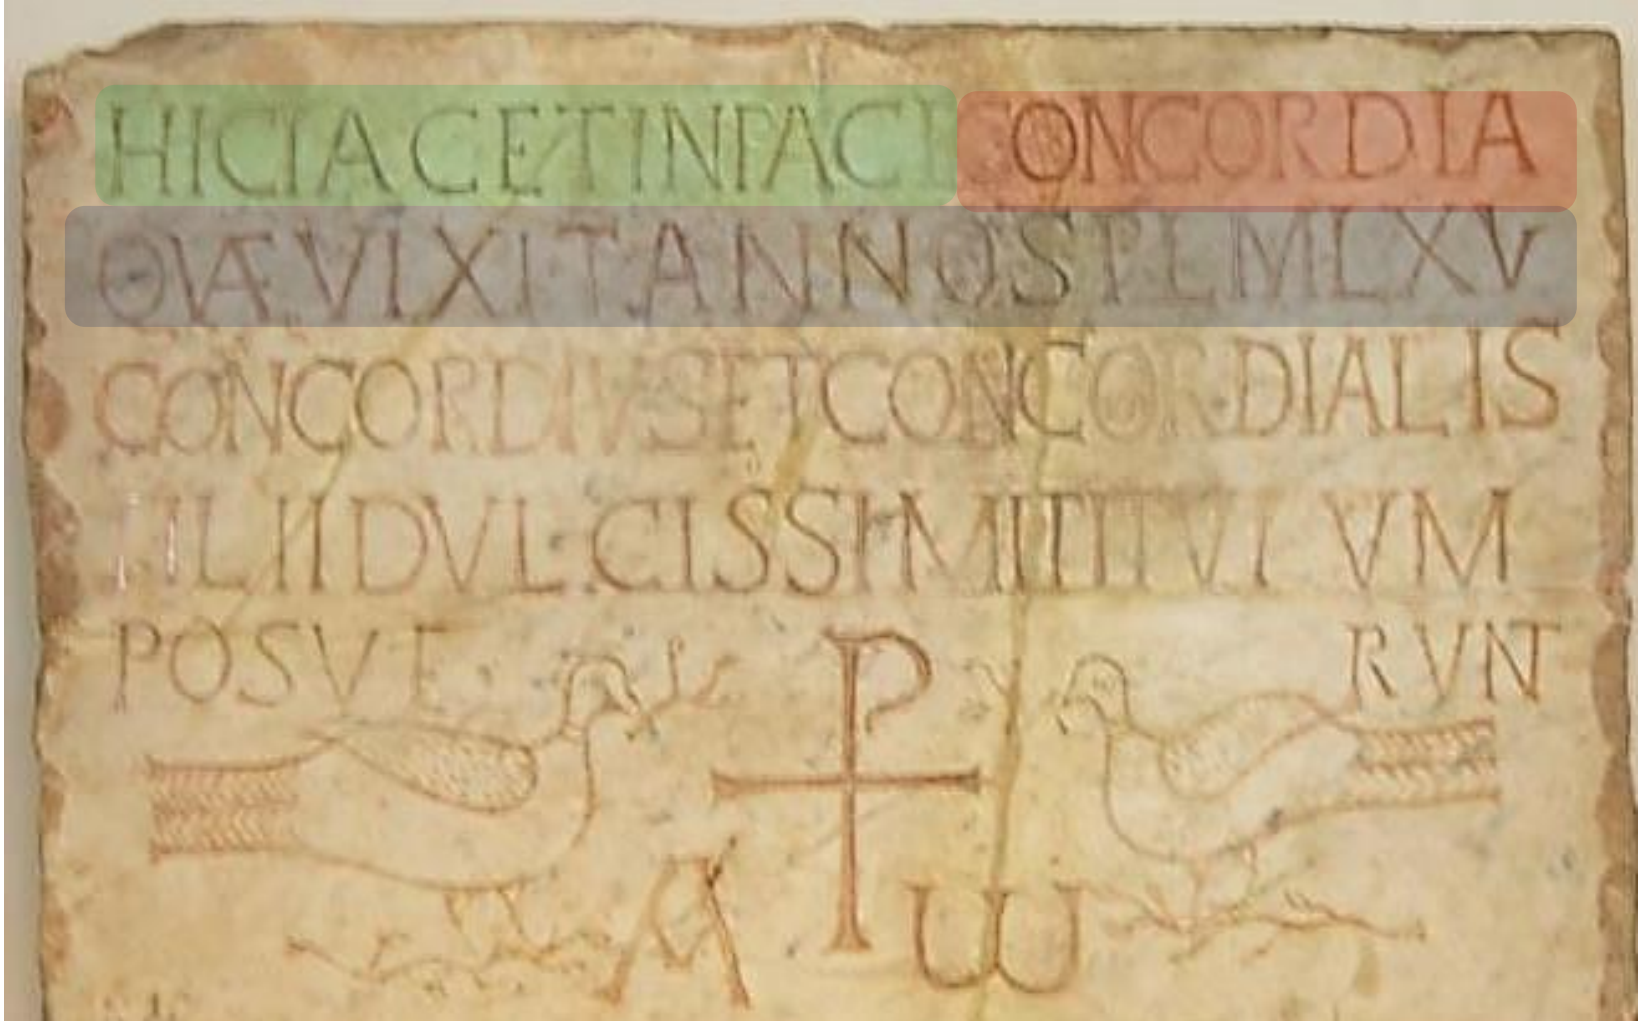 HICIACETINPACI CONCORDIA
QVÆVIXITANNOSPLMLXV
CONCORDIVSETCONCORDIALIS
FILIIDVLCISSIMITITVLVM
POSVE RVNT
A ω